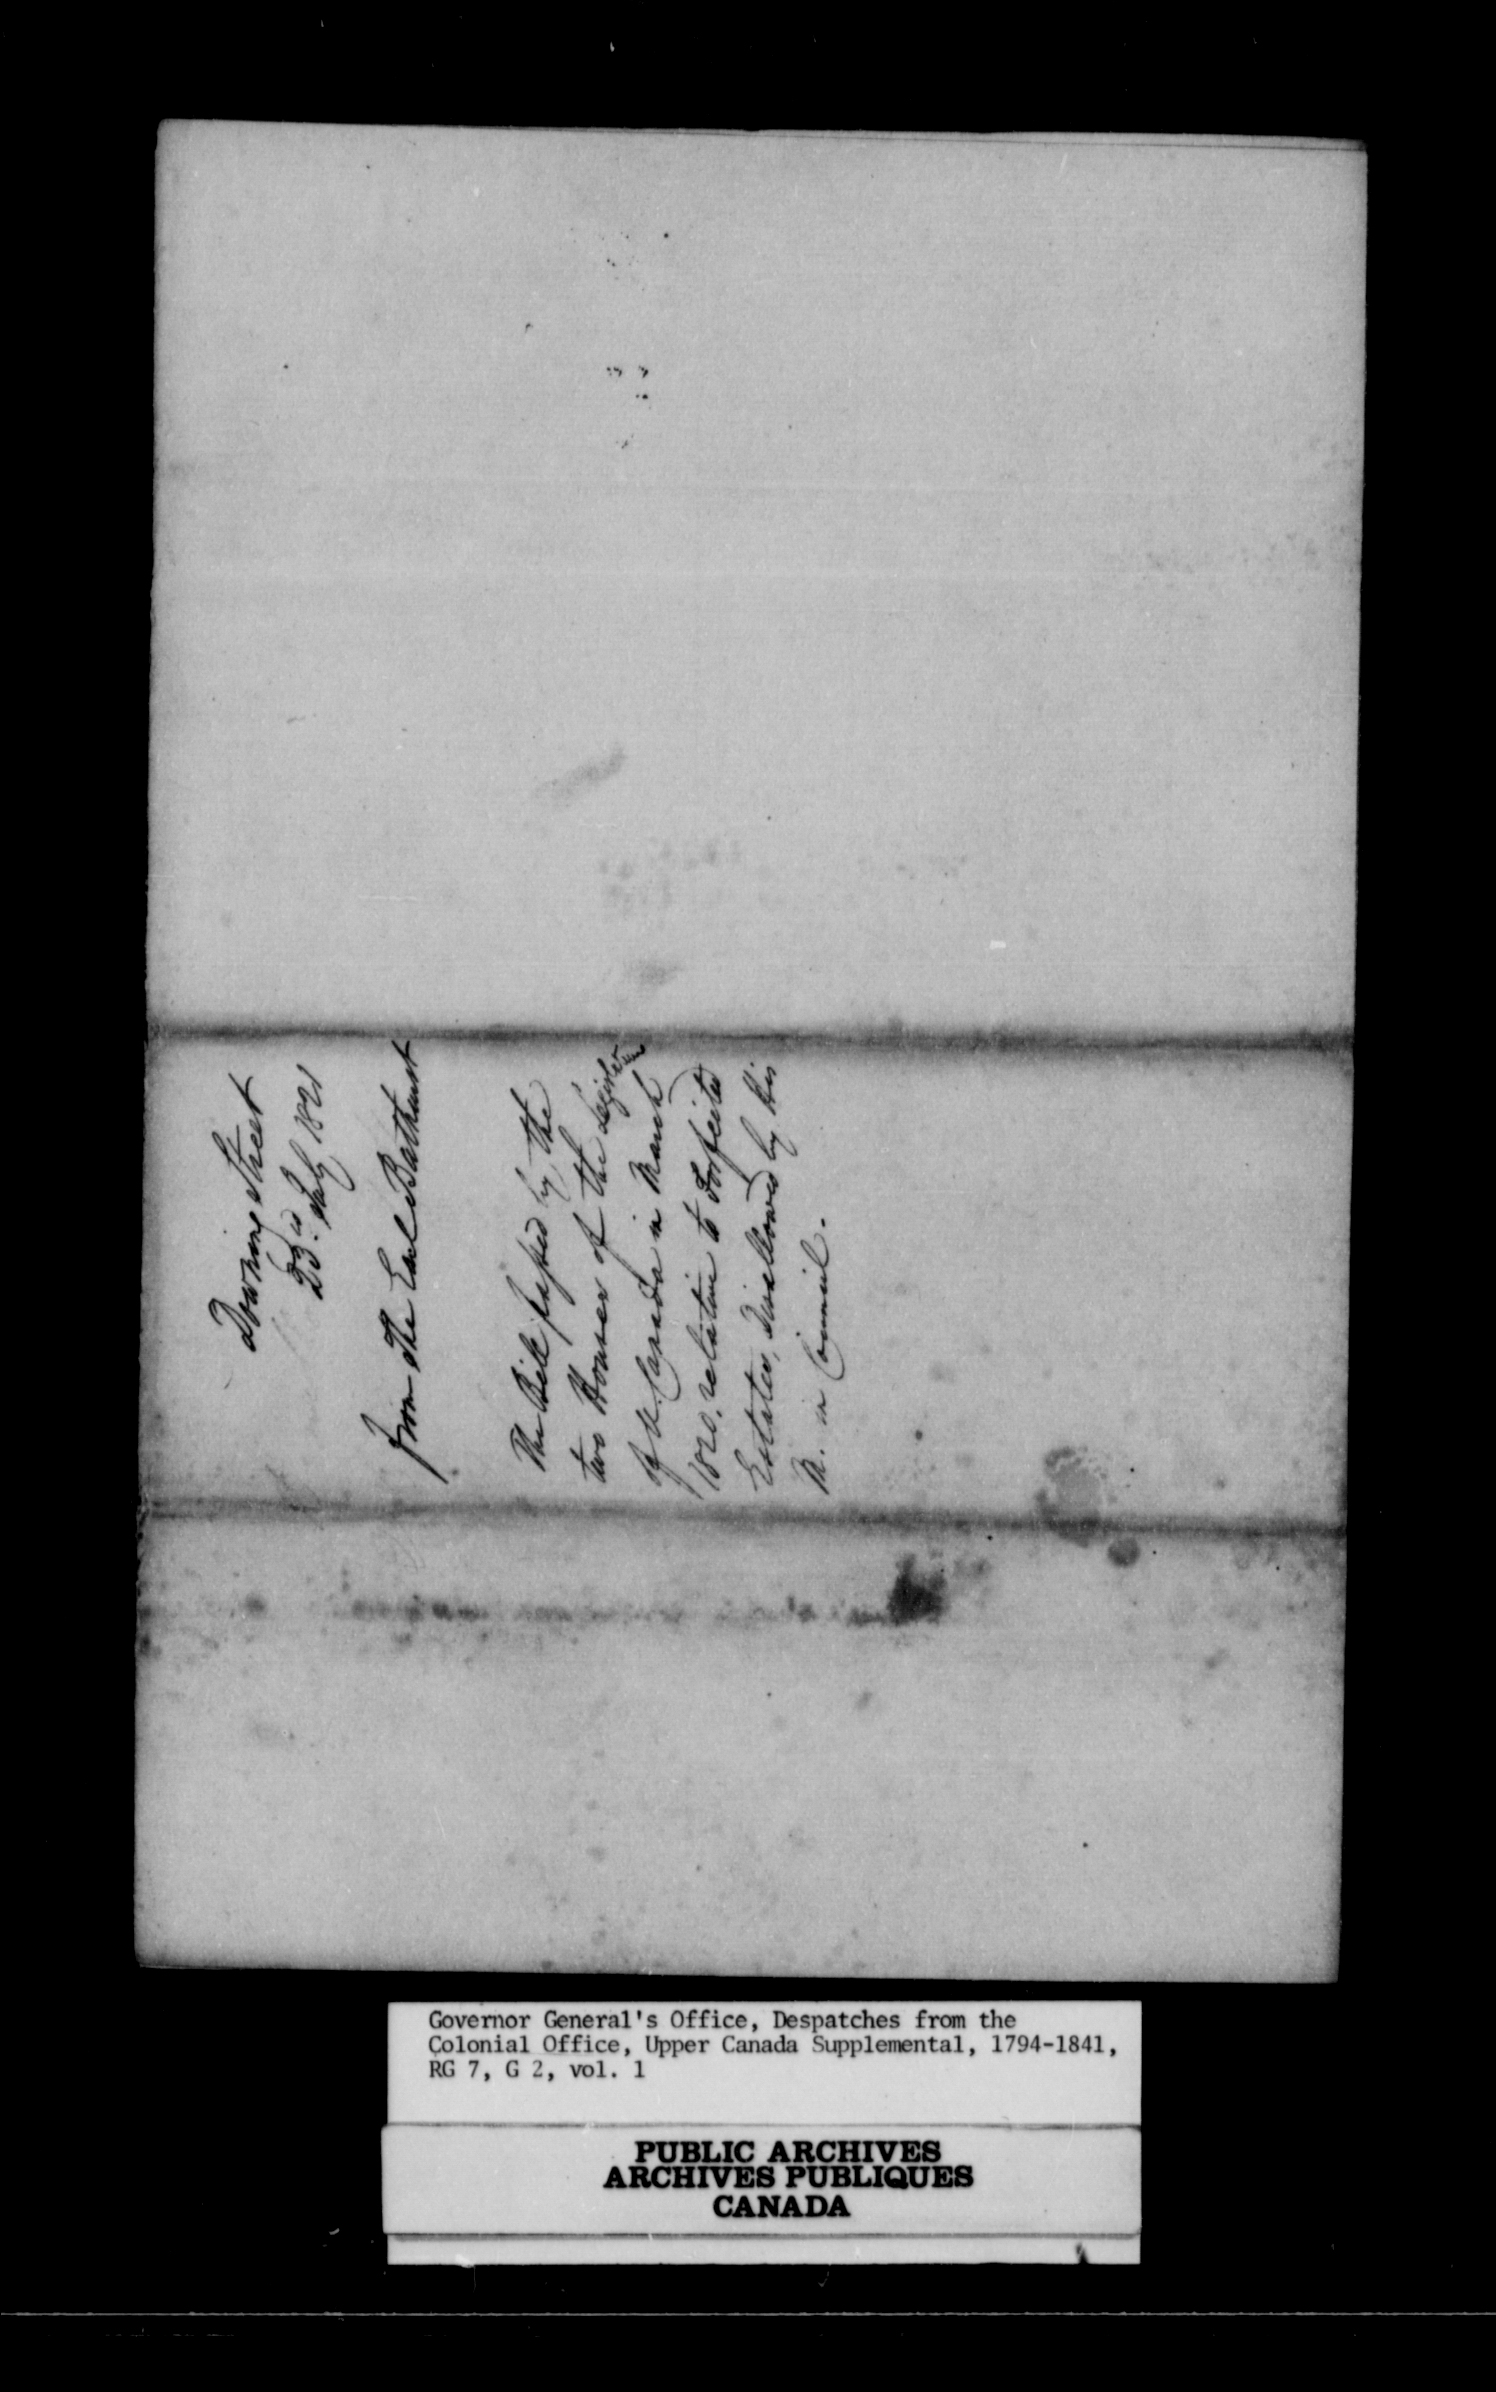 Downing Street
23d. July 1821
From The Earl Bathurst
The Bill passed by the
two Houses of the Legislature
of U. Canada in March
1820. relative to Forfeited
Estates, disallowed by His
M. in Council.
Governor General's Office, Despatches from the
Colonial Office, Upper Canada Supplemental, 1794-1841,
RG 7, G 2, vol. 1
PUBLIC ARCHIVES
ARCHIVES PUBLIQUES
CANADA